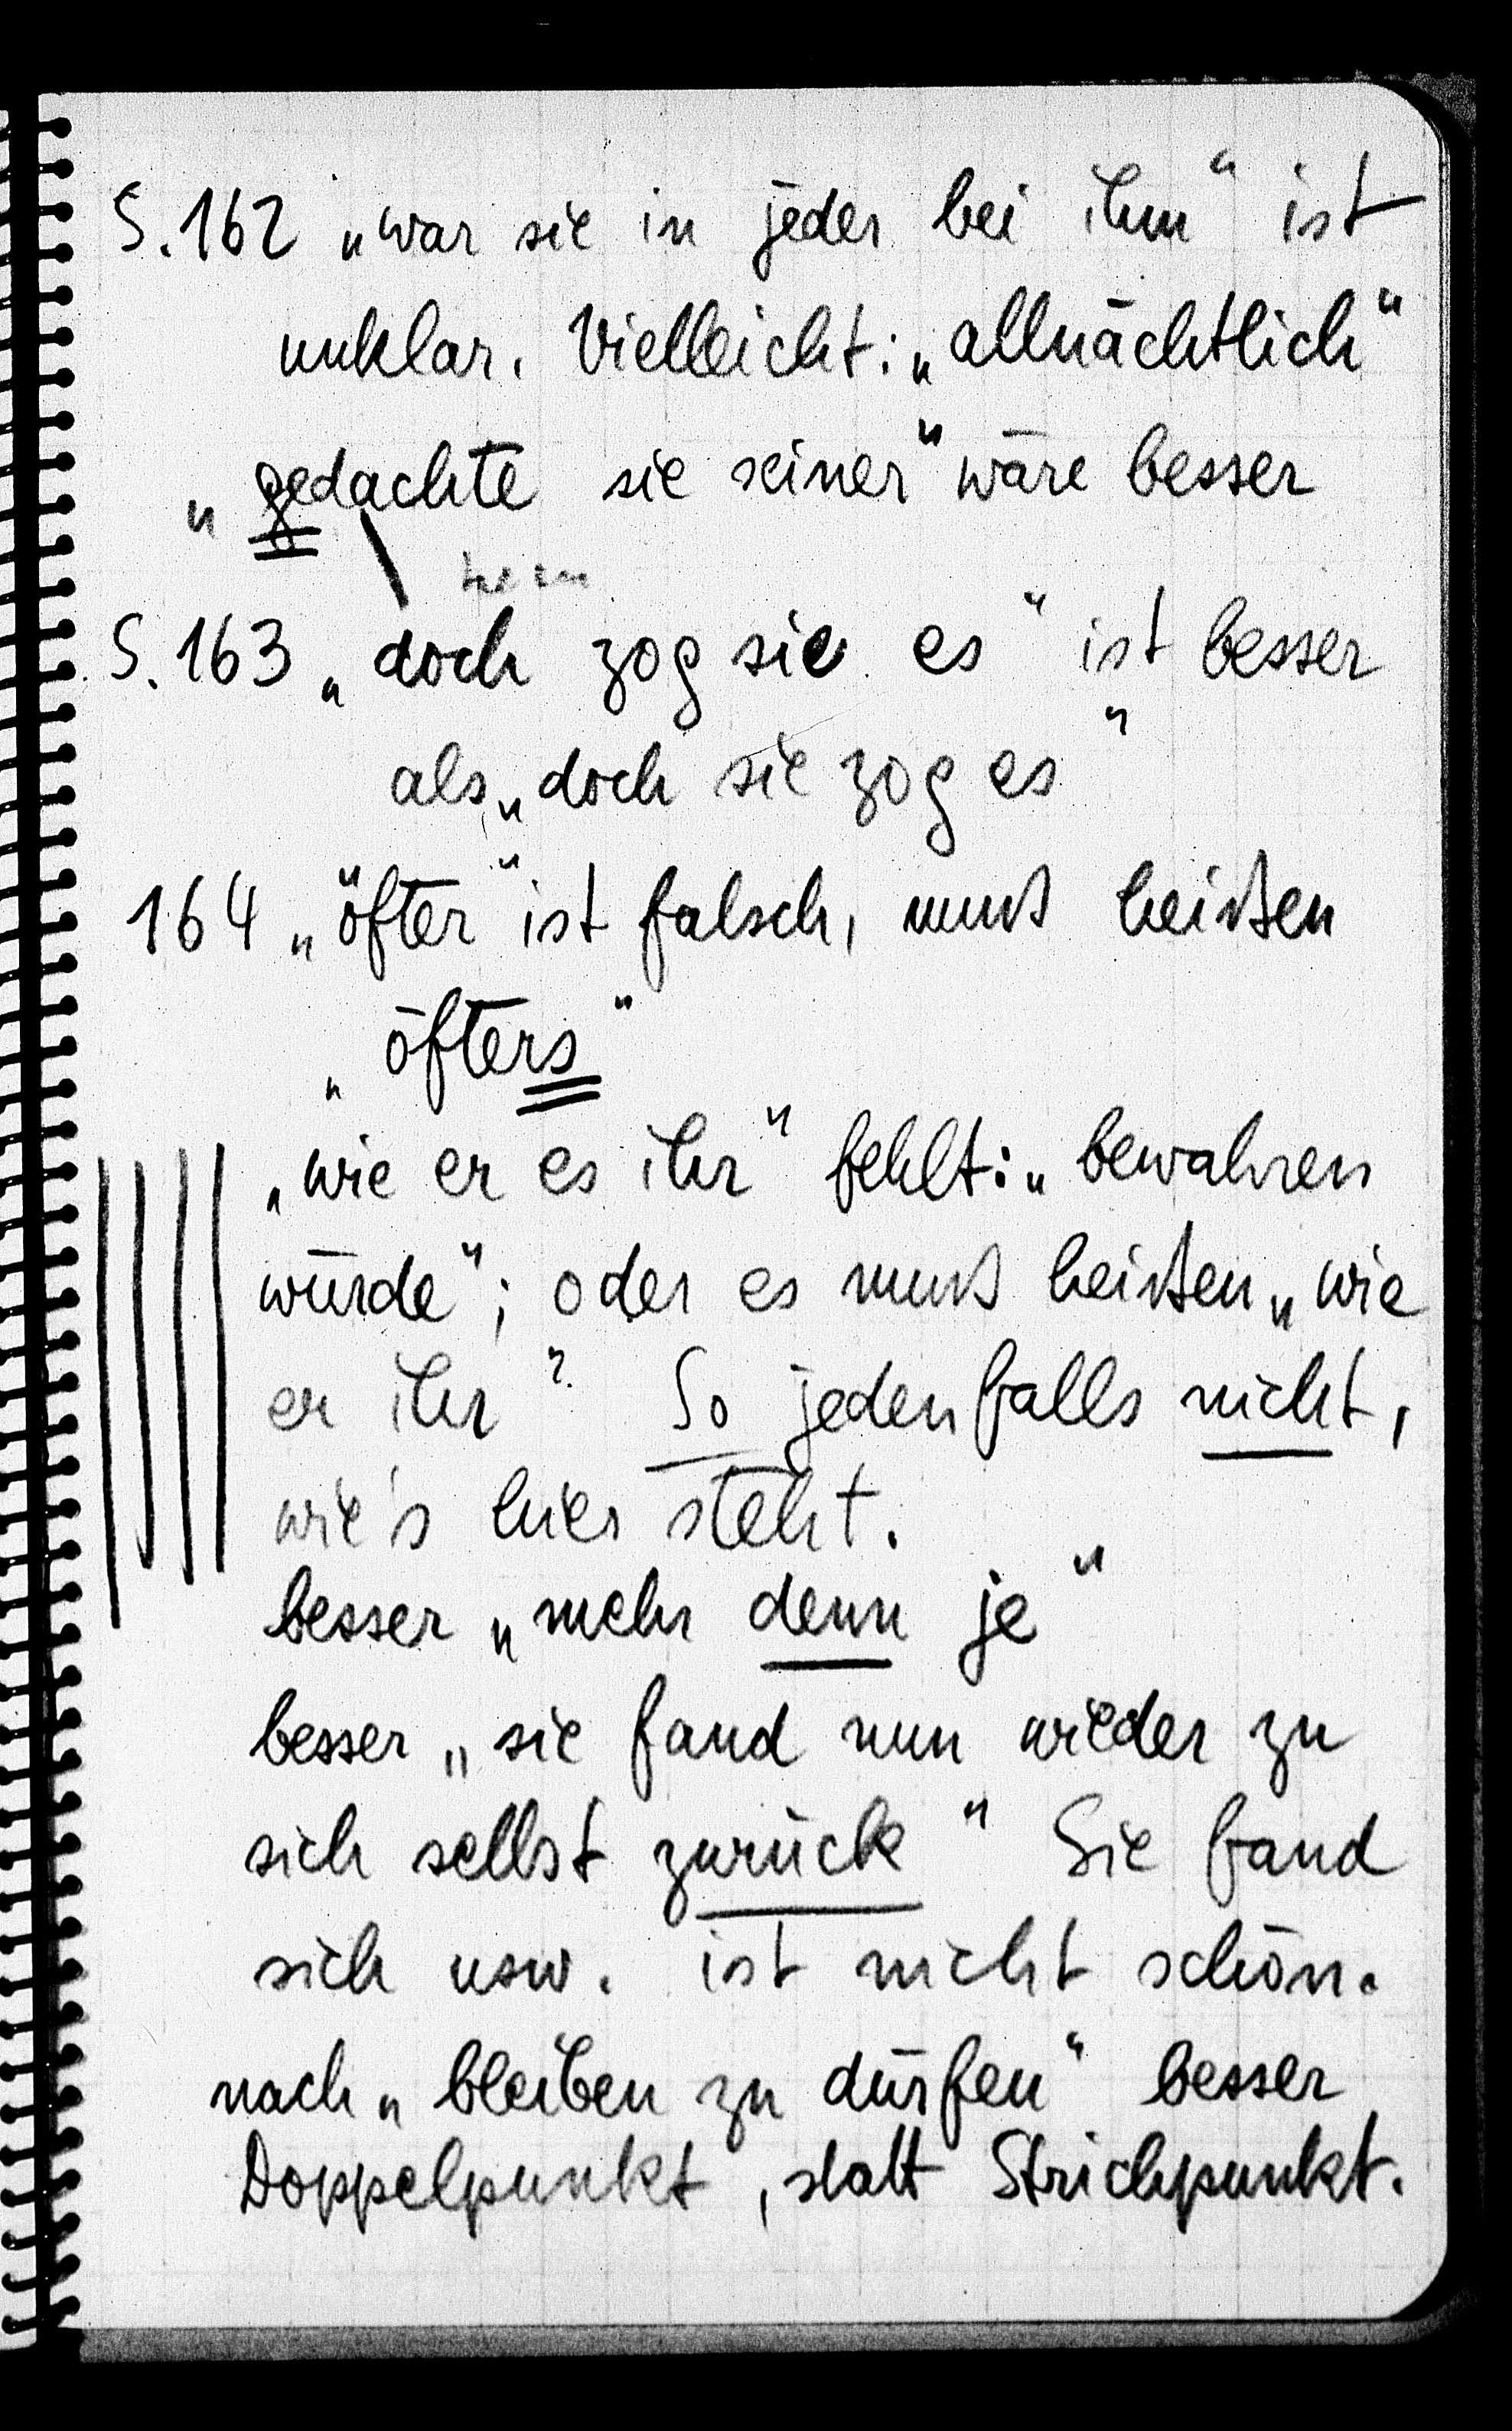 S. 162 „war sie in jeder bei ihm“ ist
unklar. Vielleicht: „allnächtlich“
„gedachte sie seiner“ wäre besser
nein
S. 163 „doch zog sie es“ ist besser
als „doch sie zog es“
164 „öfter“ ist falsch, muß heißen
„öfters“
„wie er es ihr“ fehlt: „bewahren
würde“; oder es muß heißen „wie
er ihr“. So jedenfalls nicht,
wie's hier steht.
besser „mehr denn je“
besser „sie fand nun wieder zu
sich selbst zurück“ Sie fand
sich usw. ist nicht schön.
nach „bleiben zu dürfen“ besser
Doppelpunkt, statt Strichpunkt.